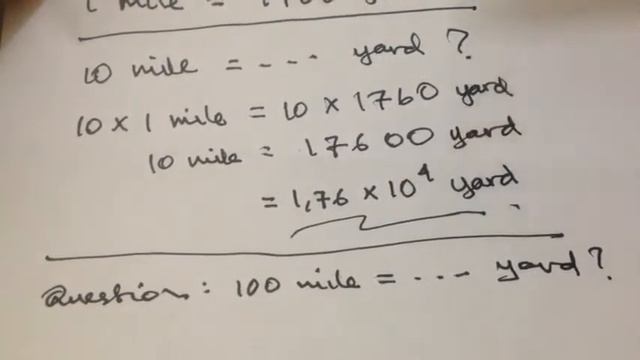 1 mile =
10 mile = ... yard ?
10 × 1 mile = 10 × 1760 yard
10 mile = 17600 yard
= 1,76 × 10⁴ yard
Question : 100 mile = ... yard ?